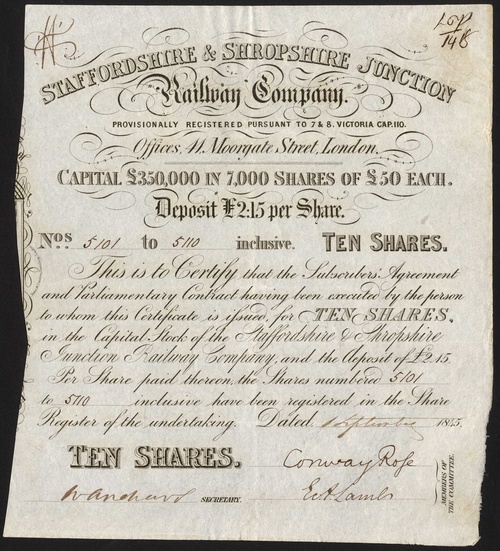 STAFFORDSHIRE & SHROPSHIRE JUNCTION
Railway Company.
PROVISIONALLY REGISTERED PURSUANT TO 7 & 8. VICTORIA CAP. 110.
Offices, 41, Moorgate Street, London.
CAPITAL £350,000 IN 7,000 SHARES OF £50 EACH.
Deposit £2:15 per Share.
Nos. 5101 to 5110 inclusive. TEN SHARES.
This is to Certify that the Subscribers' Agreement
and Parliamentary Contract having been executed by the person
to whom this Certificate is issued, for TEN SHARES,
in the Capital Stock of the Staffordshire & Shropshire
Junction Railway Company, and the deposit of £2.15.
Per Share paid thereon, the Shares numbered 5101
to 5110 inclusive have been registered in the Share
Register of the undertaking. Dated September 1845.
TEN SHARES. Conway Rose
SECRETARY. Lamb
MEMBERS OF THE COMMITTEE.